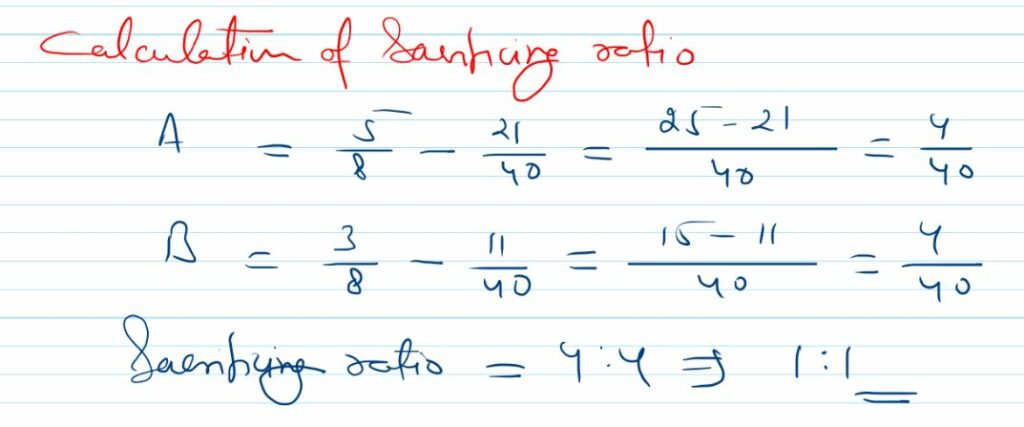 Calculation of Sacrificing ratio
A = 5/8 - 21/40 = 25-21/40 = 4/40
B = 3/8 - 11/40 = 15-11/40 = 4/40
Sacrificing ratio = 4:4 ⇒ 1:1